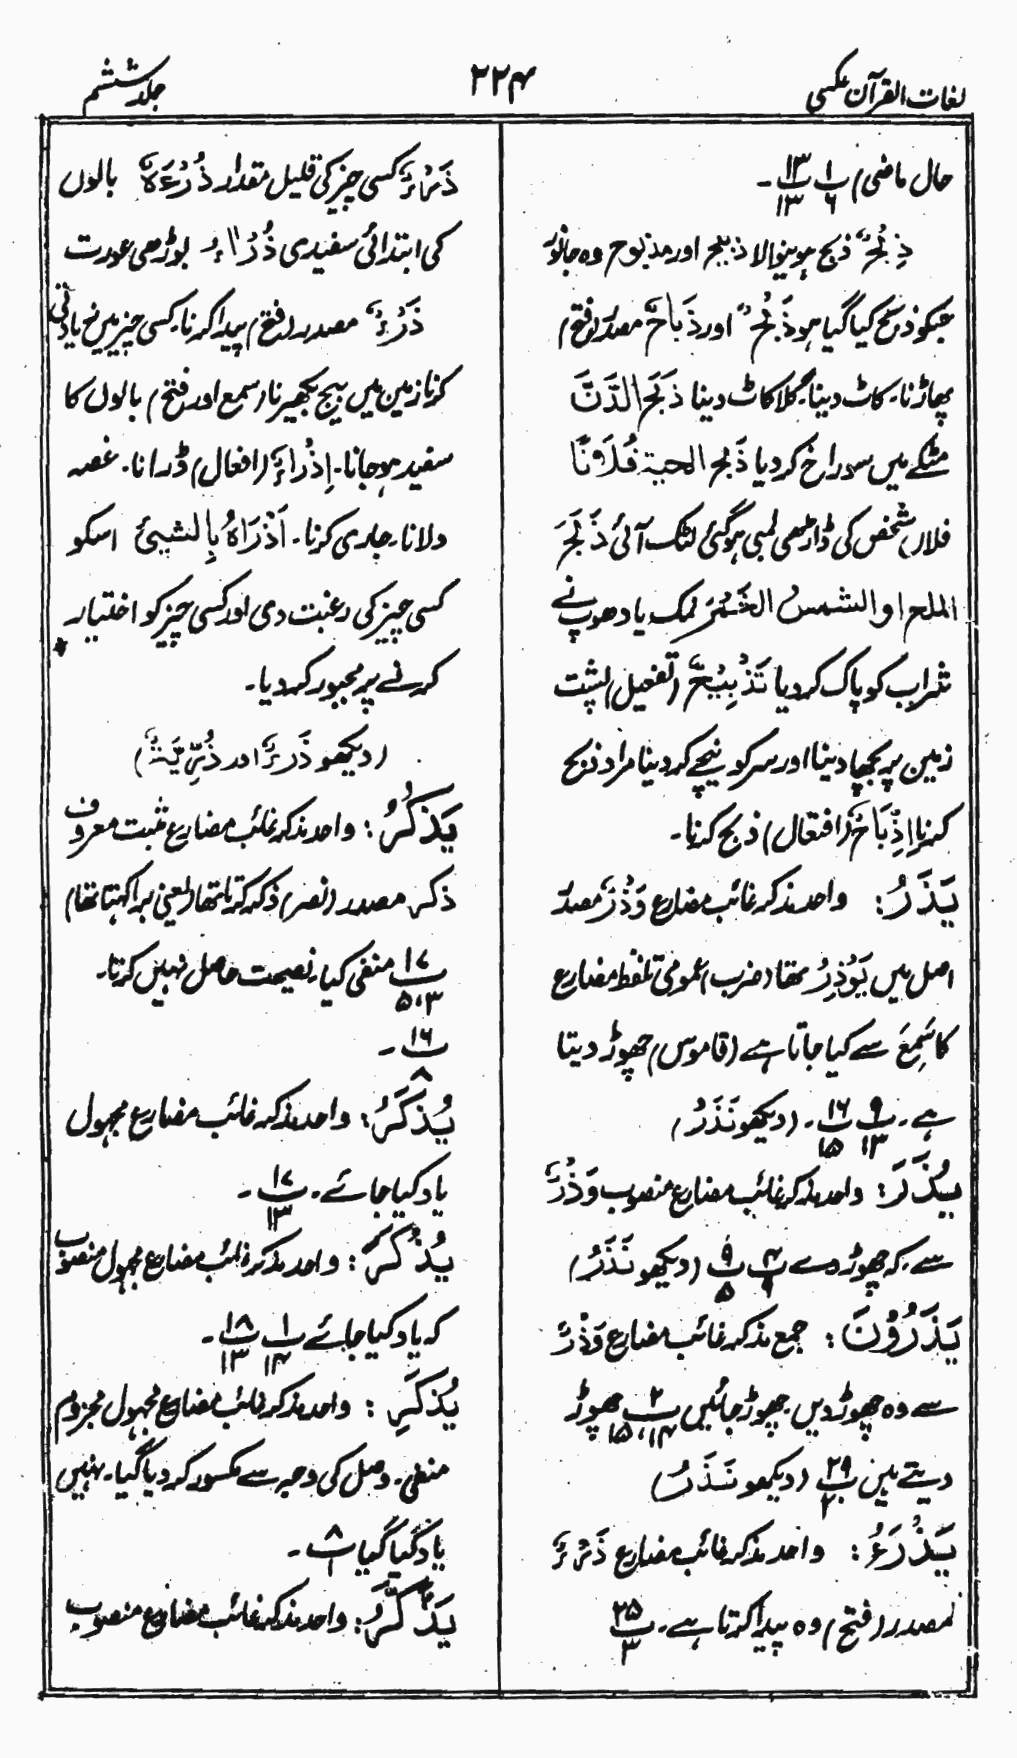 لغات القرآن عکسی
۲۲۴
جلد ششم
حال ماضی) پ۱/۶ پ۱۳/۱۳۔
ذِبْحٌ ذبح ہونیوالا ذبیحہ اور مذبوح وہ جانور
جسکو ذبح کیا گیا ہو ذَبْحٌ اور ذَبَاحٌ مصدر (فتح)
پھاڑنا۔ کاٹ دینا۔ گلا کاٹ دینا ذَبَحَ الدَّنَّ
مٹکے میں سوراخ کر دیا ذَبَحَ الحیۃ فُلَانًا
فلاں شخص کی ڈاڑھی لمبی ہوگئی لٹک آئی ذَبَحَ
الملح او الشمس الخَمْرَ نمک یا دھوپ نے
شراب کو پاک کر دیا تَذْبِیْحٌ (تفعیل) پشت
زمین پر بچھا دینا اور سر کو نیچے کر دینا مراد ذبح
کرنا اِذِّبَاحٌ (افتعال) ذبح کرنا۔
یَذَرُ: واحد مذکر غائب مضارع وَذْرٌ مصدر
اصل میں یَوْذِرُ تھا (ضرب) عمومی تلفظ مضارع
کا سَمِعَ سے کیا جاتا ہے (قاموس) چھوڑ دیتا
ہے۔ پ۹/۱۳ پ۱۶/۱۵۔ (دیکھو نَذَرُ)
یَذَرَ: واحد مذکر غائب مضارع منصوب وَذْرٌ
سے۔ کہ چھوڑ دے پ۴/۹ پ۹/۵ (دیکھو نَذَرُ)
یَذَرُوْنَ: جمع مذکر غائب مضارع وَذْرٌ
سے وہ چھوڑ دیں۔ چھوڑ جائیں پ۲/۱۴،۱۵ چھوڑ
دیتے ہیں پ۲۹/۲۰ (دیکھو نَذَرُ)
یَذْرَءُ: واحد مذکر غائب مضارع ذَرْءٌ
مصدر (فتح) وہ پیدا کرتا ہے۔ پ۲۵/۳
ذَرْءٌ کسی چیز کی قلیل مقدار ذُرْءَۃٌ بالوں
کی ابتدائی سفیدی بوڑھی عورت
ذَرْءٌ مصدر (فتح) پیدا کرنا۔ کسی چیز میں زیادتی
کرنا زمین میں بیج بکھیرنا (سمع اور فتح) بالوں کا
سفید ہو جانا۔ اِذْرَاءٌ (افعال) ڈرانا۔ غصہ
دلانا۔ جاری کرنا۔ اَذْرَاہُ بِالشیئ اسکو
کسی چیز کی رغبت دی اور کسی چیز کو اختیار
کرنے پر مجبور کر دیا۔
(دیکھو ذَرَءَ اور ذُرِّیَّۃٌ)
یَذْکُرُ: واحد مذکر غائب مضارع مثبت معروف
ذکر مصدر (نصر) ذکر کرتا تھا (یعنی برا کہتا تھا)
پ۱۷/۳،۵ منفی کیا۔ نصیحت حاصل نہیں کرتا۔
پ۱۶/۸۔
یُذْکَرُ: واحد مذکر غائب مضارع مجہول
یاد کیا جائے۔ پ۱۷/۱۳۔
یُذْکَرَ: واحد مذکر غائب مضارع مجہول منصوب
کہ یاد کیا جائے پ۱/۱۴ پ۱۸/۱۳۔
یُذْکَرِ: واحد مذکر غائب مضارع مجہول مجزوم
منفی۔ وصل کی وجہ سے مکسور کر دیا گیا۔ نہیں
یاد کیا گیا پ۸/۱۔
یَذَّکَّرُ: واحد مذکر غائب مضارع منصوب